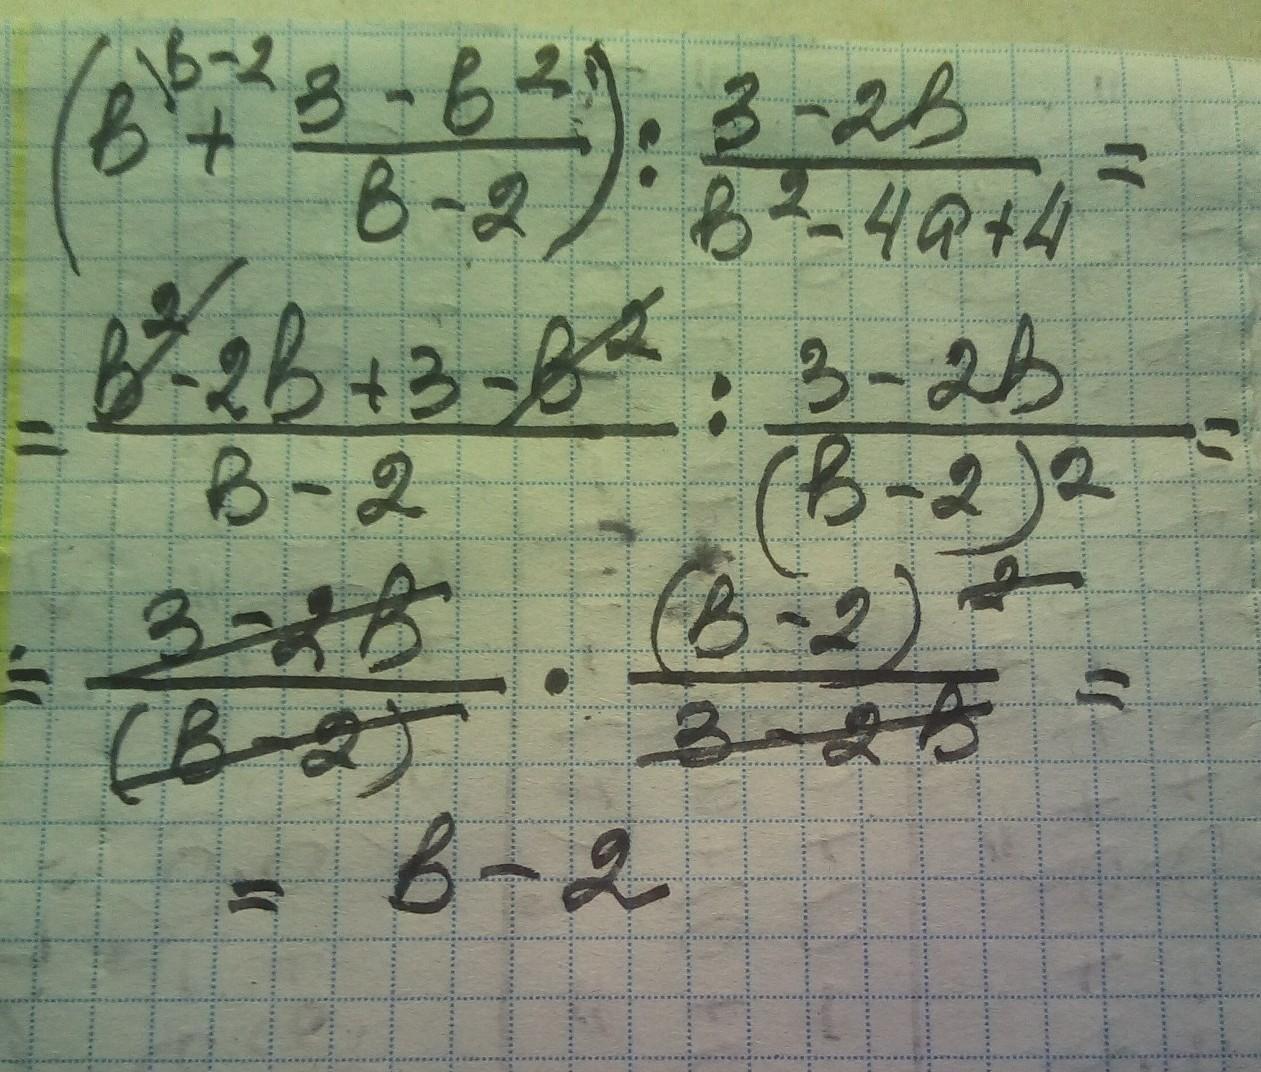 (в\в-2 + (3 - в²\1)/(в - 2)) : (3 - 2в)/(в² - 4a + 4) =
= (в² - 2в + 3 - в²)/(в - 2) : (3 - 2в)/(в - 2)² =
= (3 - 2в)/((в - 2)) · (в - 2)²/(3 - 2в) =
= в - 2